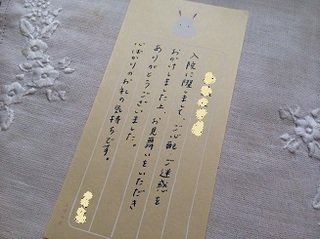 入院に際しまして、ご心配ご迷惑を
おかけしました上、お見舞いをいただき
ありがとうございました。
心ばかりのお礼の気持ちです。